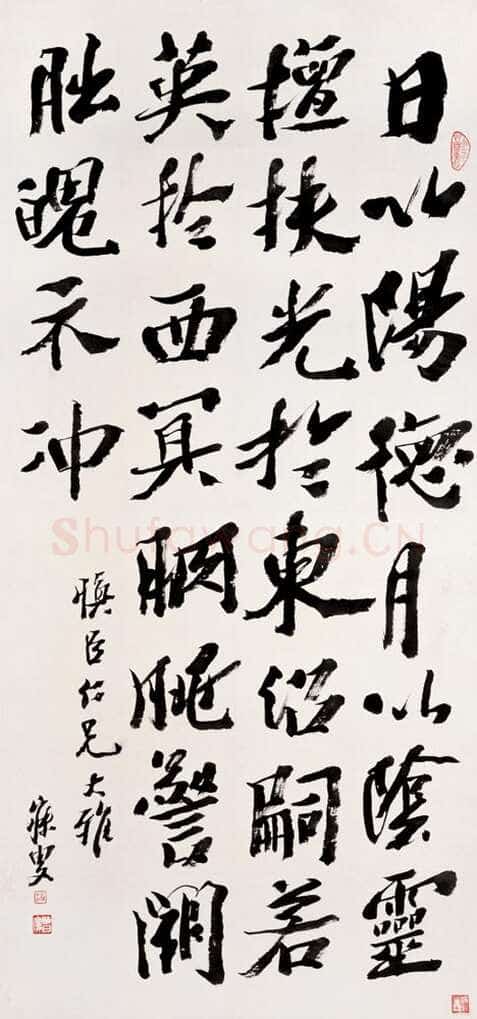 日以陽德月以陰靈
擅扶光於東沼嗣若
英於西冥朒朓警闕
朏魄示冲
慎臣仁兄大雅
寐叟
Shufawang.CN